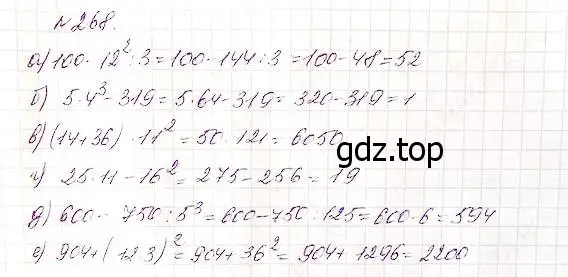 №268.
а) 100 - 12² : 3 = 100 - 144 : 3 = 100 - 48 = 52
б) 5 · 4³ - 319 = 5 · 64 - 319 = 320 - 319 = 1
в) (14 + 36) · 11² = 50 · 121 = 6050
г) 25 · 11 - 16² = 275 - 256 = 19
д) 600 - 750 : 5³ = 600 - 750 : 125 = 600 - 6 = 594
е) 904 + (12 3)² = 904 + 36² = 904 + 1296 = 2200
gdz.top